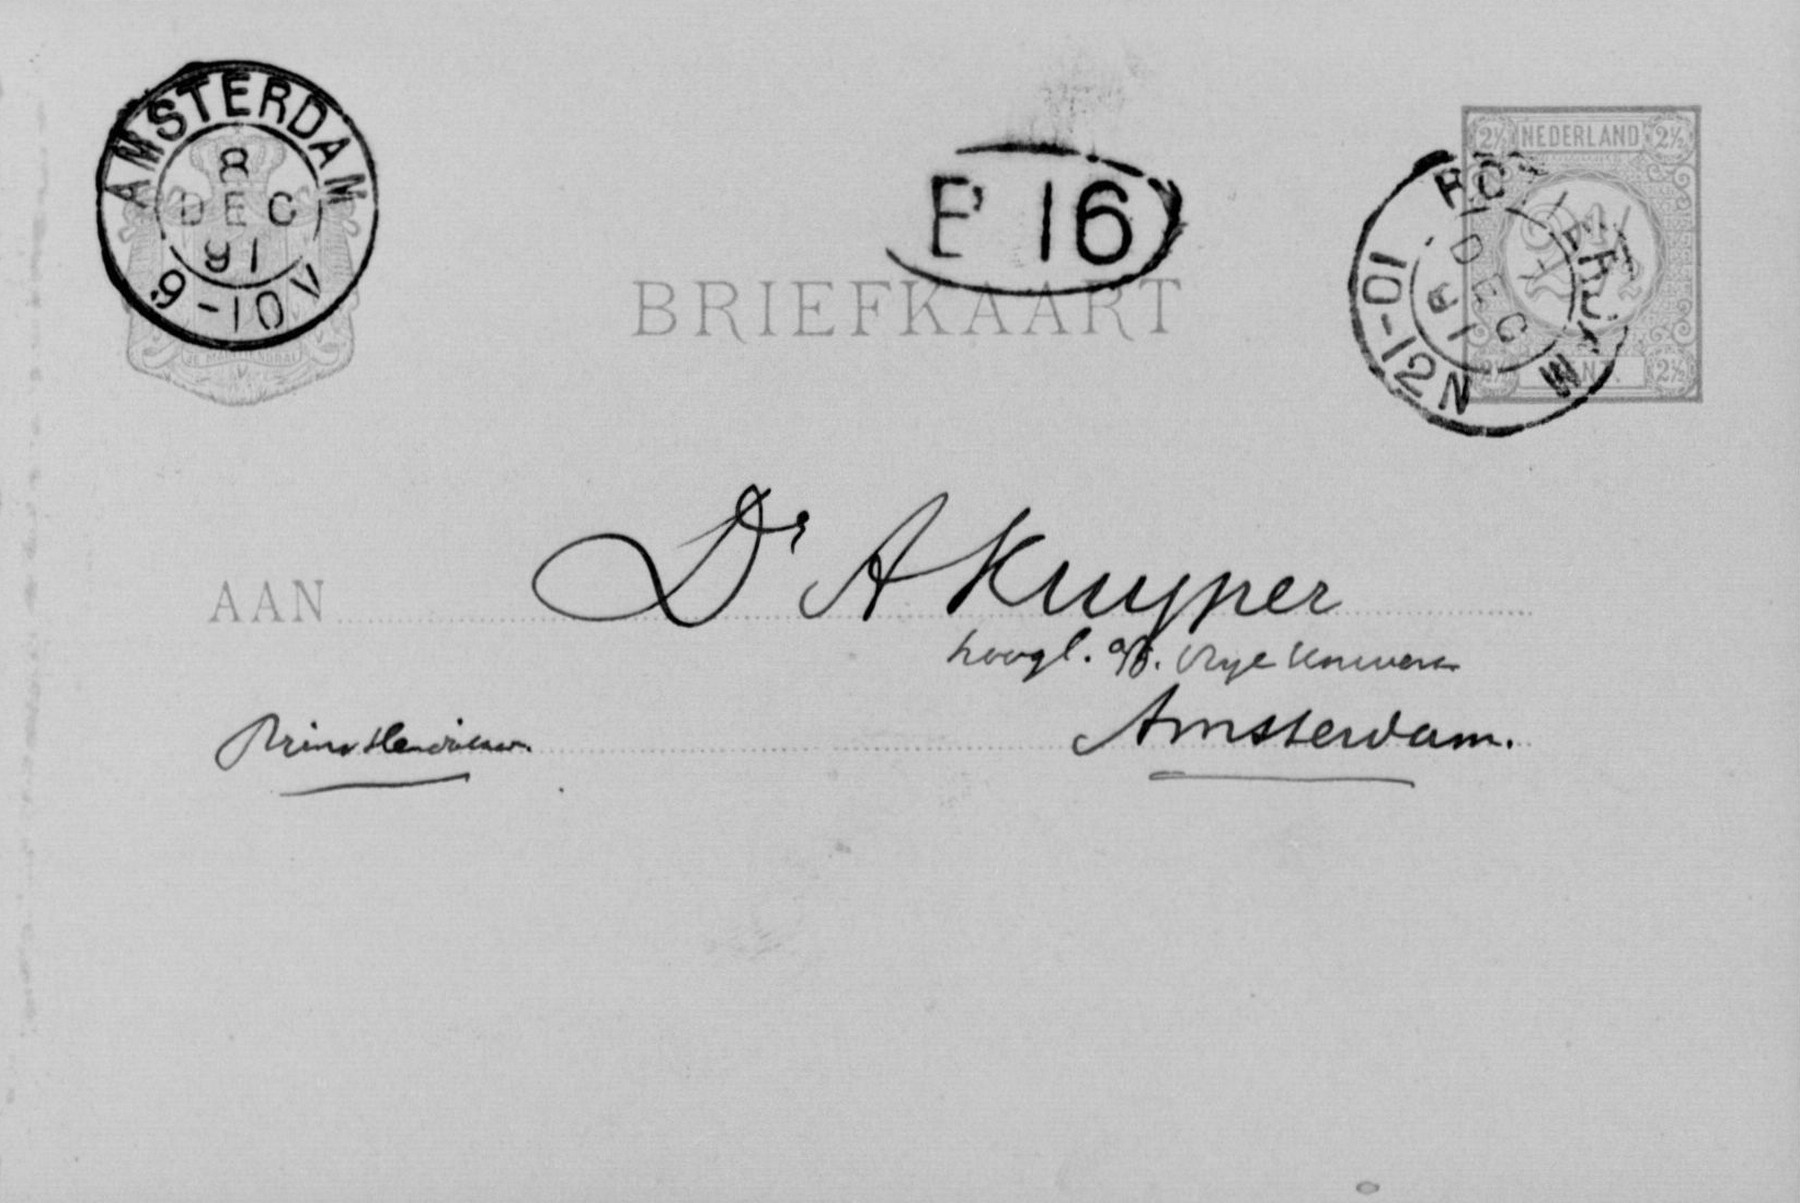 AMSTERDAM
8
DEC
91
9-10V
JE MAINTIENDRAI
P 16
2½ NEDERLAND 2½
DEC
91
10-12N
2½ 2½
BRIEFKAART
AAN Dr A Kuyper
hoogl. a/d. Vrije Univers
Prins Hendrikkade Amsterdam.